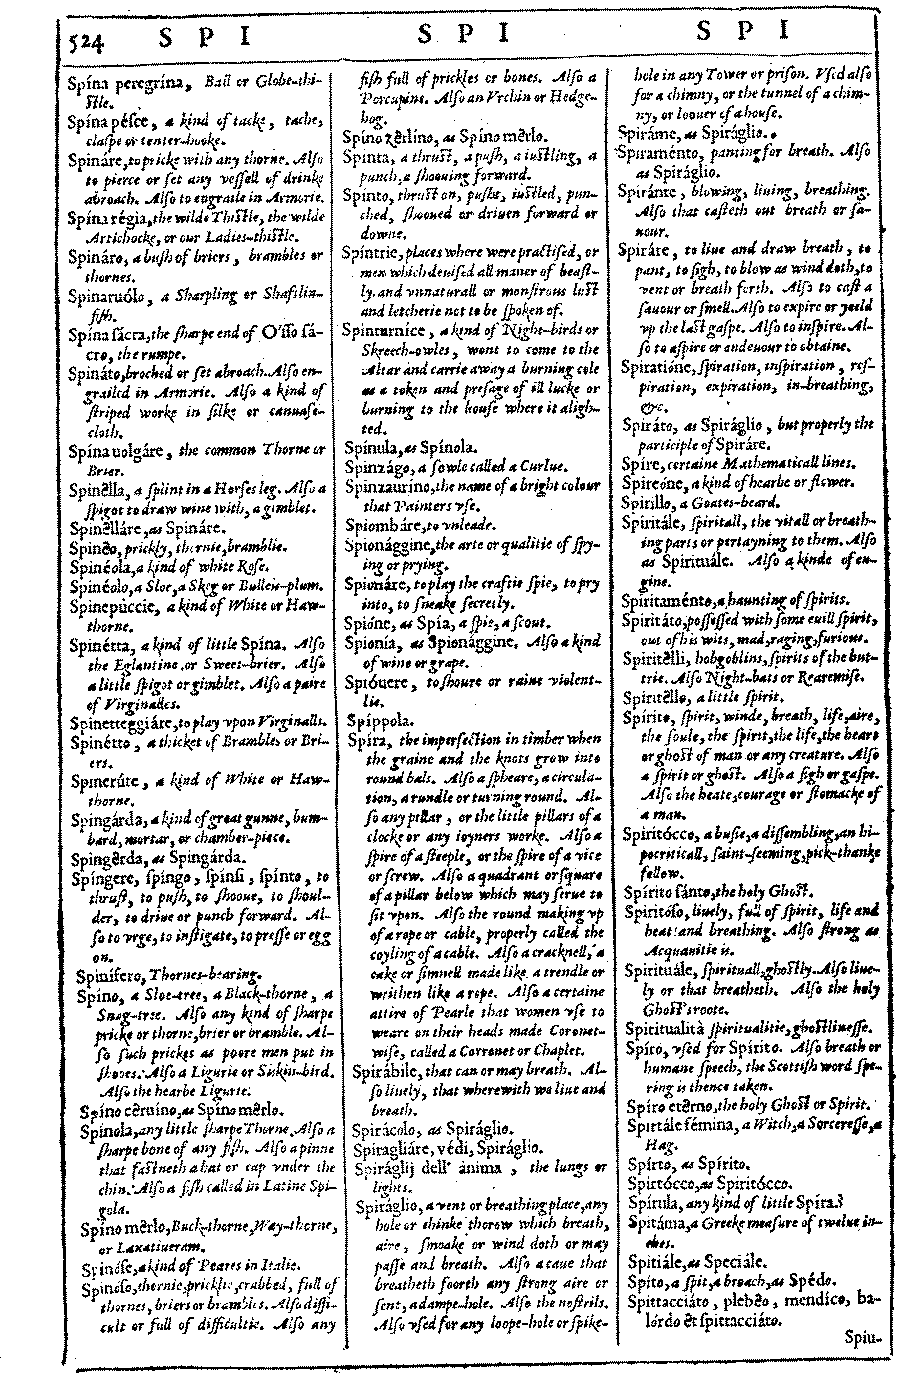 524 S P I S P I S P I
Spína peregrína, Ball or Globe-thi-
stle.
Spína pésce, a kind of tacke, tache,
claspe or tenter-hooke.
Spináre, to pricke with any thorne. Also
to pierce or set any vessell of drinke
abroach. Also to engraile in Armorie.
Spína régia, the wilde Thistle, the wilde
Artichocke, or our Ladies-thistle.
Spináro, a bush of briers, brambles or
thornes.
Spinaruólo, a Sharpling or Shafslin-
fish.
Spína sácra, the sharpe end of O'sso sá-
cro, the rumpe.
Spináto, broched or set abroach. Also en-
grailed in Armorie. Also a kind of
striped worke in silke or canuase-
cloth.
Spína uolgáre, the common Thorne or
Brier.
Spinélla, a splint in a Horses leg. Also a
spigot to draw wine with, a gimblet.
Spinelláre, as Spináre.
Spinêo, prickly, thornie, bramblie.
Spinéola, a kind of white Rose.
Spinéolo, a Sloe, a Skeg or Bulleis-plum.
Spinepúccie, a kind of White or Haw-
thorne.
Spinétta, a kind of little Spína. Also
the Eglantine, or Sweet-brier. Also
a little spigot or gimblet. Also a paire
of Virginalles.
Spinetteggiáre, to play vpon Virginalls.
Spinétto, a thicket of Brambles or Bri-
ers.
Spinerúte, a kind of White or Haw-
thorne.
Spingárda, a kind of great gunne, bum-
bard, mortar, or chamber-piece.
Spingêrda, as Spingárda.
Spíngere, spingo, spinsi, spinto, to
thrust, to push, to shooue, to shoul-
der, to driue or punch forward. Al-
so to vrge, to instigate, to presse or egg
on.
Spinífero, Thornes-bearing.
Spíno, a Sloe-tree, a Black-thorne, a
Snag-tree. Also any kind of sharpe
pricke or thorne, brier or bramble. Al-
so such prickes as poore men put in
shooes. Also a Ligurie or Siskin-bird.
Also the hearbe Ligurie.
Spíno ceruíno, as Spíno mêrlo.
Spínola, any little sharpe Thorne. Also a
sharpe bone of any fish. Also a pinne
that fastneth a hat or cap vnder the
chin. Also a fish called in Latine Spi-
gola.
Spíno mêrlo, Buck-thorne, Way-thorne,
or Laxatiueram.
Spinóse, a kind of Peares in Italie.
Spinóso, thornie, pricklie, crabbed, full of
thornes, briers or brambles. Also diffi-
cult or full of difficultie. Also any
fish full of prickles or bones. Also a
Porcupine. Also an Vrchin or Hedge-
hog.
Spíno zerlíno, as Spíno mêrlo.
Spínta, a thrust, a push, a iustling, a
punch, a shoouing forward.
Spínto, thrust on, pusht, iustled, pun-
ched, shooued or driuen forward or
downe.
Spíntrie, places where were practised, or
men which deuised all maner of beast-
ly and vnnaturall or monstrous lust
and letcherie not to be spoken of.
Spinturnice, a kind of Night-birds or
Skreech-owles, wont to come to the
Altar and carrie away a burning cole
as a token and presage of ill lucke or
burning to the house where it aligh-
ted.
Spínula, as Spínola.
Spinzágo, a fowle called a Curlue.
Spinzauríno, the name of a bright colour
that Painters vse.
Spiombáre, to vnleade.
Spionággine, the arte or qualitie of spy-
ing or prying.
Spionáre, to play the craftie spie, to pry
into, to sneake secretly.
Spióne, as Spía, a spie, a scout.
Spionía, as Spionággine. Also a kind
of wine or grape.
Spióuere, to shoure or raine violent-
lie.
Spíppola.
Spíra, the imperfection in timber when
the graine and the knots grow into
round bals. Also a spheare, a circula-
tion, a rundle or turning round. Al-
so any pillar, or the little pillars of a
clocke or any ioyners worke. Also a
spire of a steeple, or the spire of a vice
or screw. Also a quadrant or square
of a pillar below which may serue to
sit vpon. Also the round making vp
of a rope or cable, properly called the
coyling of a cable. Also a cracknell, a
cake or simnell made like a trendle or
writhen like a rope. Also a certaine
attire of Pearle that women vse to
weare on their heads made Coronet-
wise, called a Corronet or Chaplet.
Spirábile, that can or may breath. Al-
so liuely, that wherewith we liue and
breath.
Spirácolo, as Spiráglio.
Spiragliáre, védi, Spiráglio.
Spiráglij dell' ánima, the lungs or
lights.
Spiráglio, a vent or breathing place, any
hole or chinke thorow which breath,
aire, smoake or wind doth or may
passe and breath. Also a caue that
breatheth foorth any strong aire or
sent, a dampe-hole. Also the nostrils.
Also vsed for any loope-hole or spike-
hole in any Tower or prison. Vsed also
for a chimny, or the tunnel of a chim-
ny, or loouer of a house.
Spiráme, as Spiráglio.
Spiraménto, panting for breath. Also
as Spiráglio.
Spiránte, blowing, liuing, breathing.
Also that casteth out breath or sa-
uour.
Spiráre, to liue and draw breath, to
pant, to sigh, to blow as wind doth, to
vent or breath forth. Also to cast a
sauour or smell. Also to expire or yeeld
vp the last gaspe. Also to inspire. Al-
so to aspire or endeuour to obtaine.
Spiratióne, spiration, inspiration, res-
piration, expiration, in-breathing,
&c.
Spiráto, as Spiráglio, but properly the
participle of Spiráre.
Spíre, certaine Mathematicall lines.
Spireóne, a kind of hearbe or flower.
Spiríllo, a Goates-beard.
Spiritále, spiritall, the vitall or breath-
ing parts or pertayning to them. Also
as Spirituále. Also a kinde of en-
gine.
Spiritaménto, a haunting of spirits.
Spiritáto, possessed with some euill spirit,
out of his wits, mad, raging, furious.
Spiritêlli, hobgoblins, spirits of the but-
trie. Also Night-bats or Rearemise.
Spiritêllo, a little spirit.
Spírito, spirit, winde, breath, life, aire,
the soule, the spirit, the life, the heart
or ghost of man or any creature. Also
a spirit or ghost. Also a sigh or gaspe.
Also the heate, courage or stomacke of
a man.
Spiritócco, a busie, a dissembling, an hi-
pocriticall, saint-seeming, pick-thanke
fellow.
Spírito sánto, the holy Ghost.
Spiritóso, liuely, full of spirit, life and
heat and breathing. Also strong as
Acquauitie is.
Spirituále, spirituall, ghostly. Also liue-
ly or that breatheth. Also the holy
Ghosts roote.
Spiritualità spiritualitie, ghostlinesse.
Spíro, vsed for Spírito. Also breath or
humane speech, the Scottish word spe-
ring is thence taken.
Spíro etêrno, the holy Ghost or Spirit.
Spirtále fémina, a Witch, a Sorceresse, a
Hag.
Spírto, as Spírito.
Spirtócco, as Spiritócco.
Spírula, any kind of little Spíra.
Spitáma, a Greeke measure of twelue in-
ches.
Spitiále, as Speciále.
Spíto, a spit, a broach, as Spédo.
Spittacciáto, plebêo, mendíco, ba-
lórdo êt spittacciáto.
Spiu-